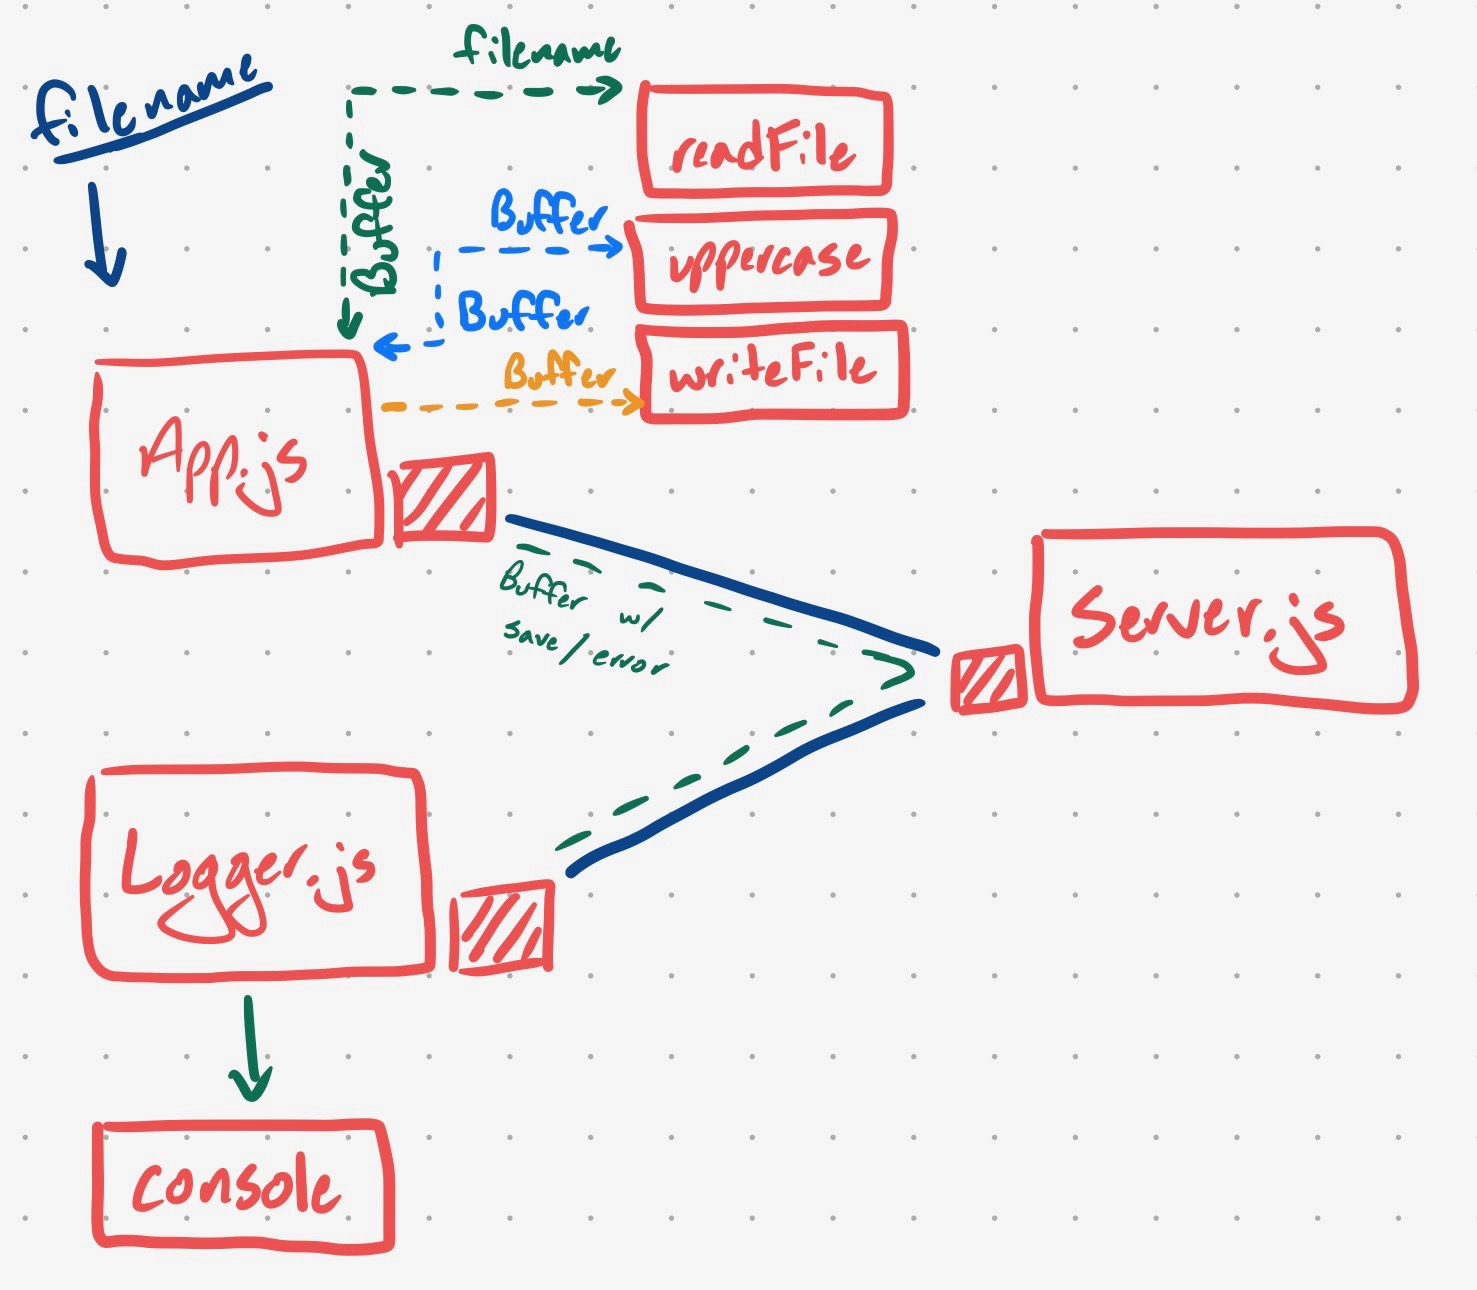 filename
filename
readFile
Buffer
Buffer
uppercase
Buffer
Buffer
writeFile
App.js
Buffer w/
save/error
Server.js
Logger.js
console